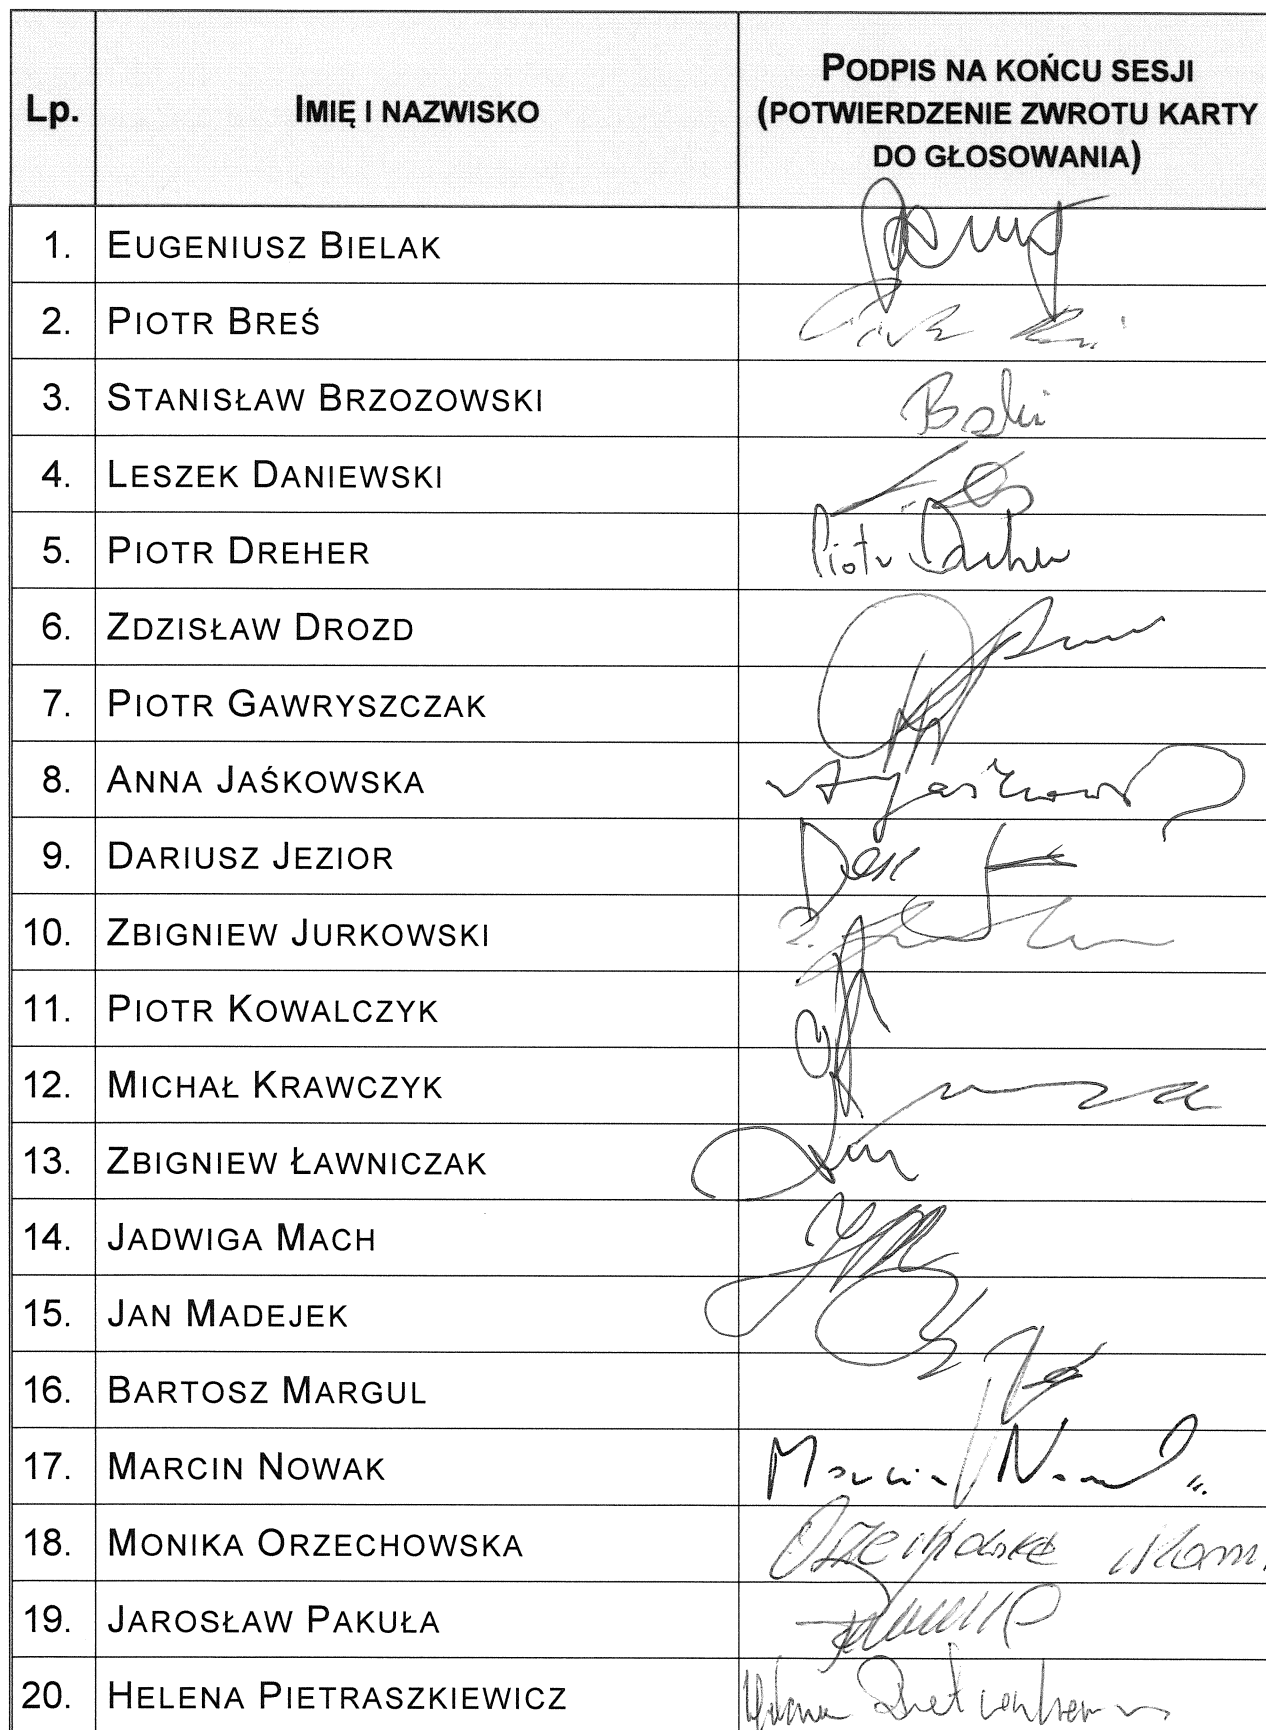 Lp.
IMIĘ I NAZWISKO
PODPIS NA KOŃCU SESJI
(POTWIERDZENIE ZWROTU KARTY
DO GŁOSOWANIA)
1. EUGENIUSZ BIELAK
2. PIOTR BREŚ
3. STANISŁAW BRZOZOWSKI
4. LESZEK DANIEWSKI
5. PIOTR DREHER Piotr Dreher
6. ZDZISŁAW DROZD
7. PIOTR GAWRYSZCZAK
8. ANNA JAŚKOWSKA
9. DARIUSZ JEZIOR
10. ZBIGNIEW JURKOWSKI
11. PIOTR KOWALCZYK
12. MICHAŁ KRAWCZYK
13. ZBIGNIEW ŁAWNICZAK
14. JADWIGA MACH
15. JAN MADEJEK
16. BARTOSZ MARGUL
17. MARCIN NOWAK Marcin Nowak
18. MONIKA ORZECHOWSKA Orzechowska
19. JAROSŁAW PAKUŁA
20. HELENA PIETRASZKIEWICZ